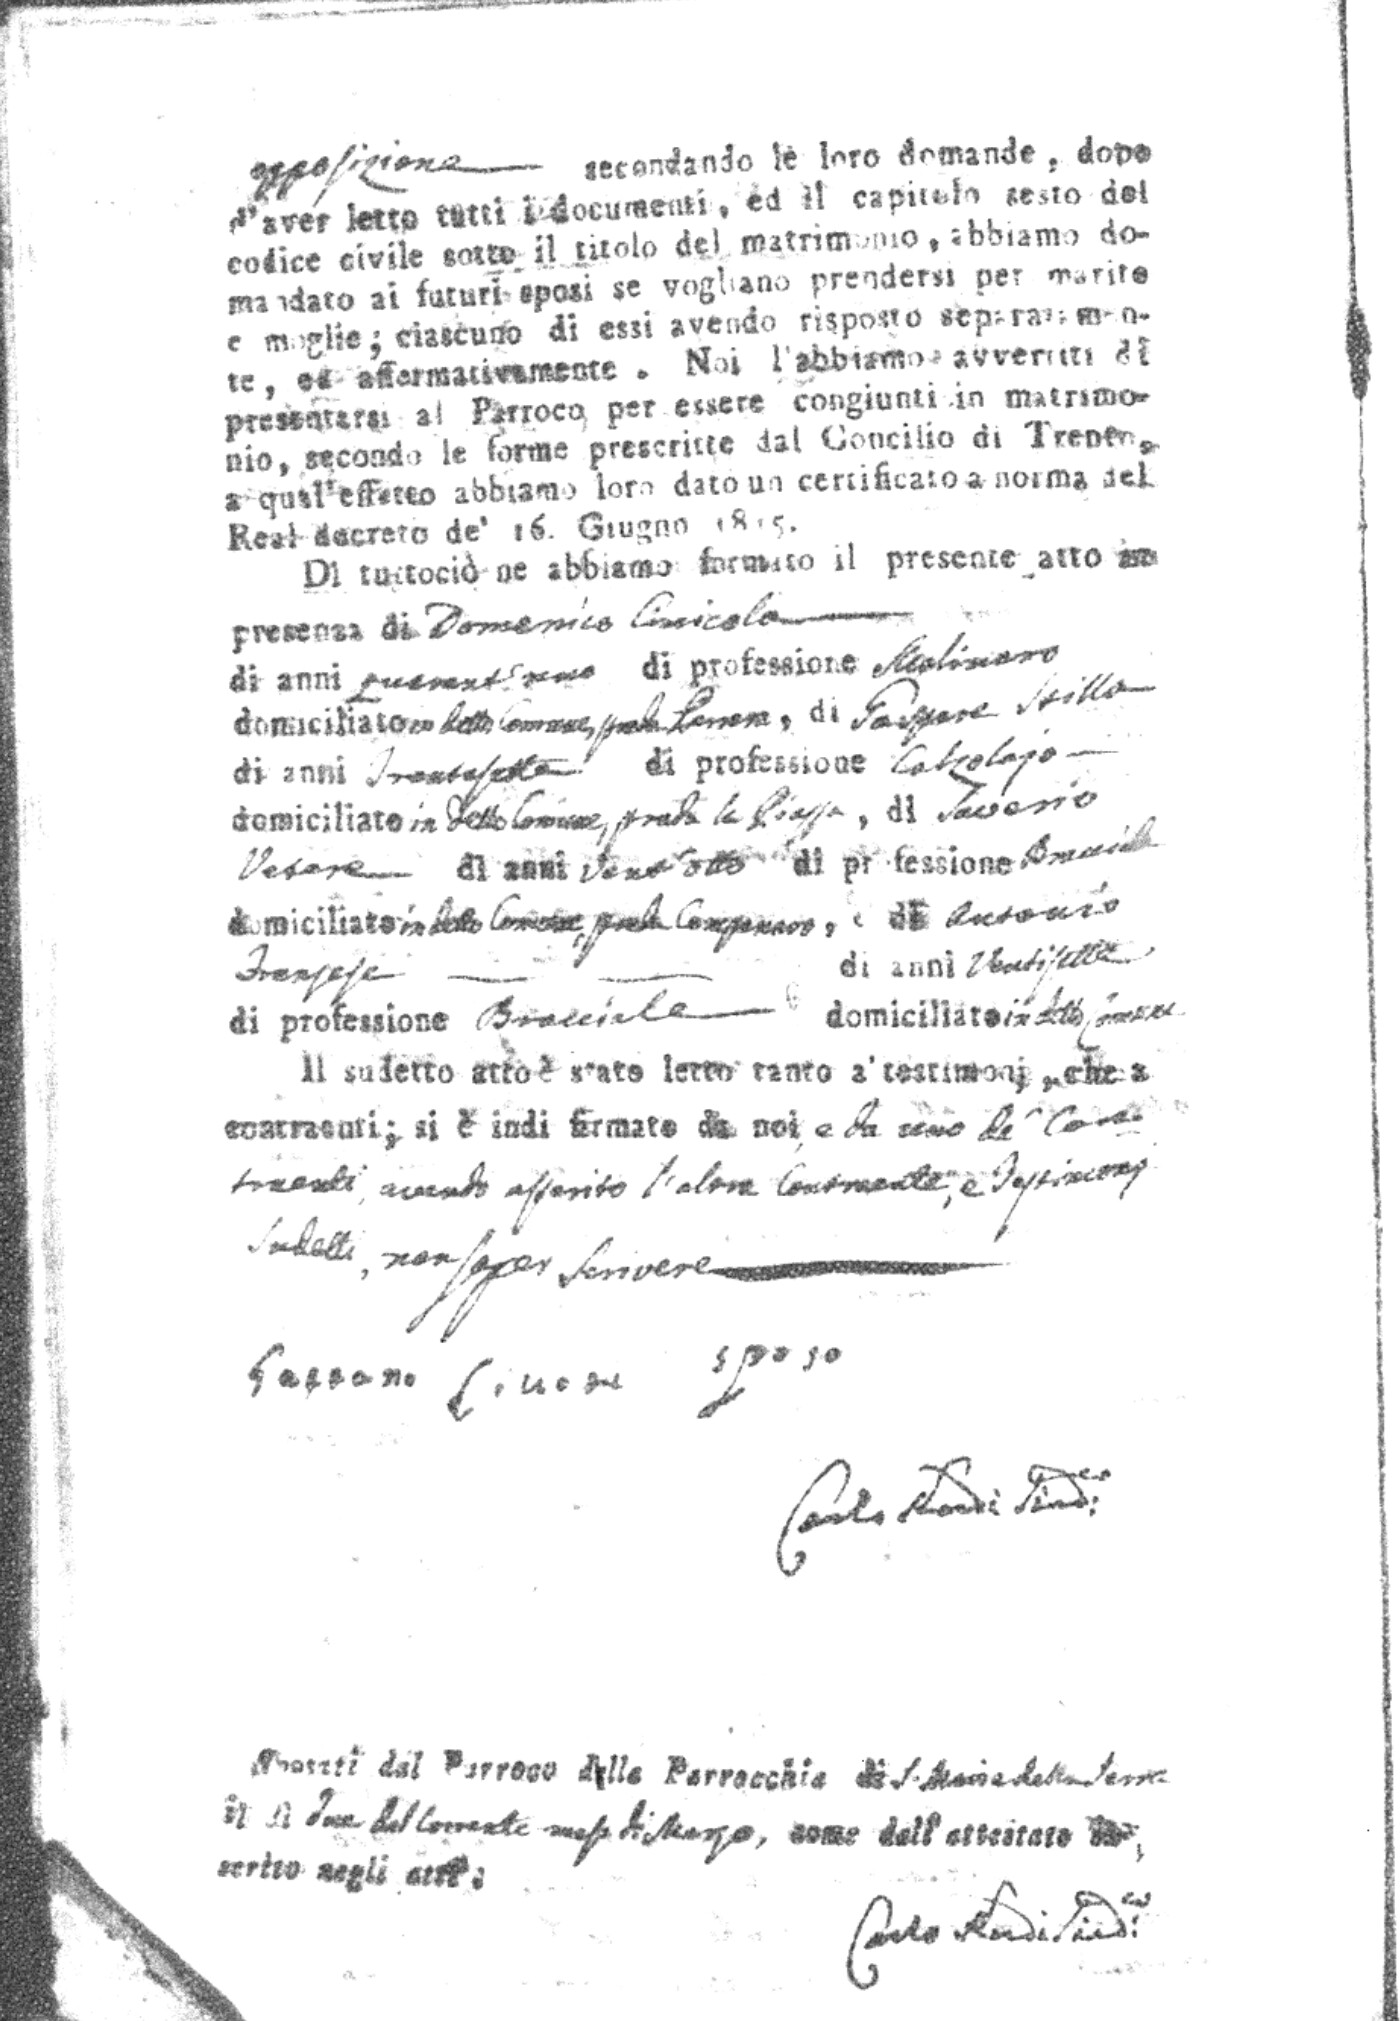 opposizione secondando le loro domande, dopo
d'aver letto tutti i documenti, ed il capitolo sesto del
codice civile sotto il titolo del matrimonio, abbiamo do-
mandato ai futuri sposi se vogliano prendersi per marito
e moglie; ciascuno di essi avendo risposto separatamen-
te, ed affermativamente. Noi l'abbiamo avvertiti di
presentarsi al Parroco per essere congiunti in matrimo-
nio, secondo le forme prescritte dal Concilio di Trento,
a qual'effetto abbiamo loro dato un certificato a norma del
Real decreto de' 16. Giugno 1815.
Di tuttociò ne abbiamo formato il presente atto in
presenza di Domenico
di anni quarant'uno di professione Molinaro
domiciliato in detto Comune, strada, di Gaspare Stilla
di anni Trentasette di professione Calzolajo
domiciliato in detto Comune, strada la Piazza, di Saverio
Vetere di anni Vent'otto di professione Bracciale
domiciliato in detto Comune, strada Campanaro, e di Antonio
di anni Ventisette
di professione Bracciale domiciliato in detto Comune
Il sudetto atto è stato letto tanto a' testimonj, che a
contraenti; si è indi firmato da noi, e da uno de' Con-
traenti, avendo asserito l'altra Contraente, e Testimonj
sudetti, non saper scrivere
sposo
Carlo Sind.co
Sposati dal Parroco della Parrocchia di S. Maria della Serra
il dì due del Corrente mese di Marzo, come dall'attestato in-
serito negli atti.
Carlo Sind.co